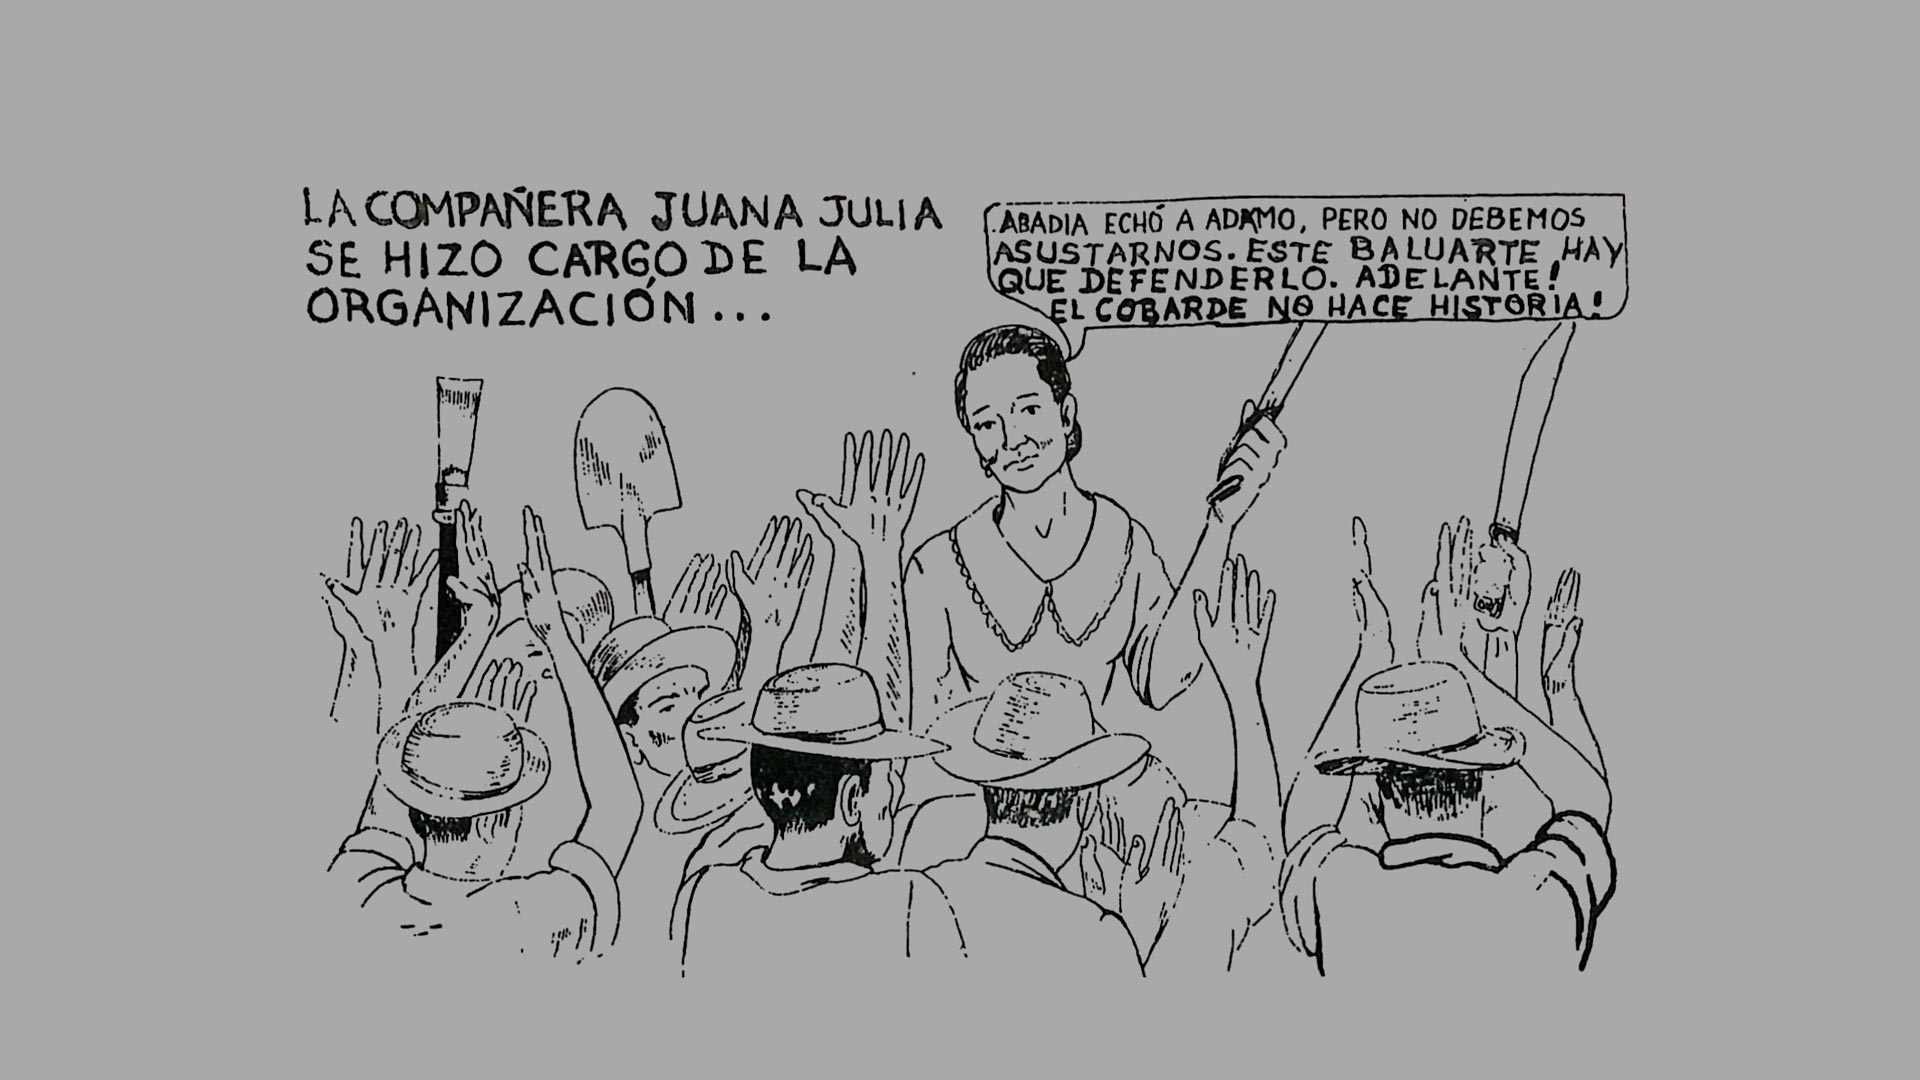 LA COMPAÑERA JUANA JULIA
SE HIZO CARGO DE LA
ORGANIZACIÓN...
ABADIA ECHÓ A ADAMO, PERO NO DEBEMOS
ASUSTARNOS. ESTE BALUARTE HAY
QUE DEFENDERLO. ADELANTE!
EL COBARDE NO HACE HISTORIA!